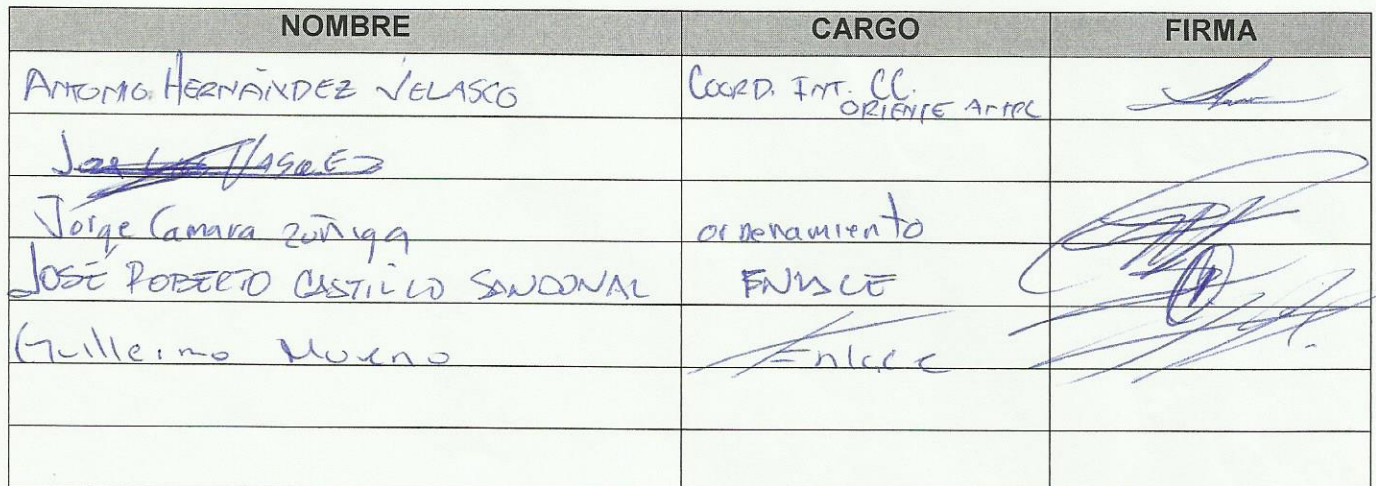 NOMBRE CARGO FIRMA
ANTONIO HERNÁNDEZ VELASCO COORD. INT. CC.
ORIENTE
VASQUEZ
Jorge Camara zuñiga ordenamiento
JOSÉ ROBERTO CASTILLO SANDOVAL ENLACE
Guillermo Moreno Enlace